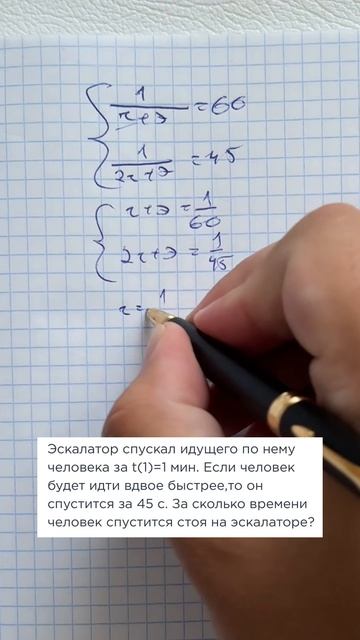 1/(ч+э) = 60
1/(2ч+э) = 45
ч+э = 1/60
2ч+э = 1/45
ч = 1
Эскалатор спускал идущего по нему
человека за t(1)=1 мин. Если человек
будет идти вдвое быстрее,то он
спустится за 45 с. За сколько времени
человек спустится стоя на эскалаторе?